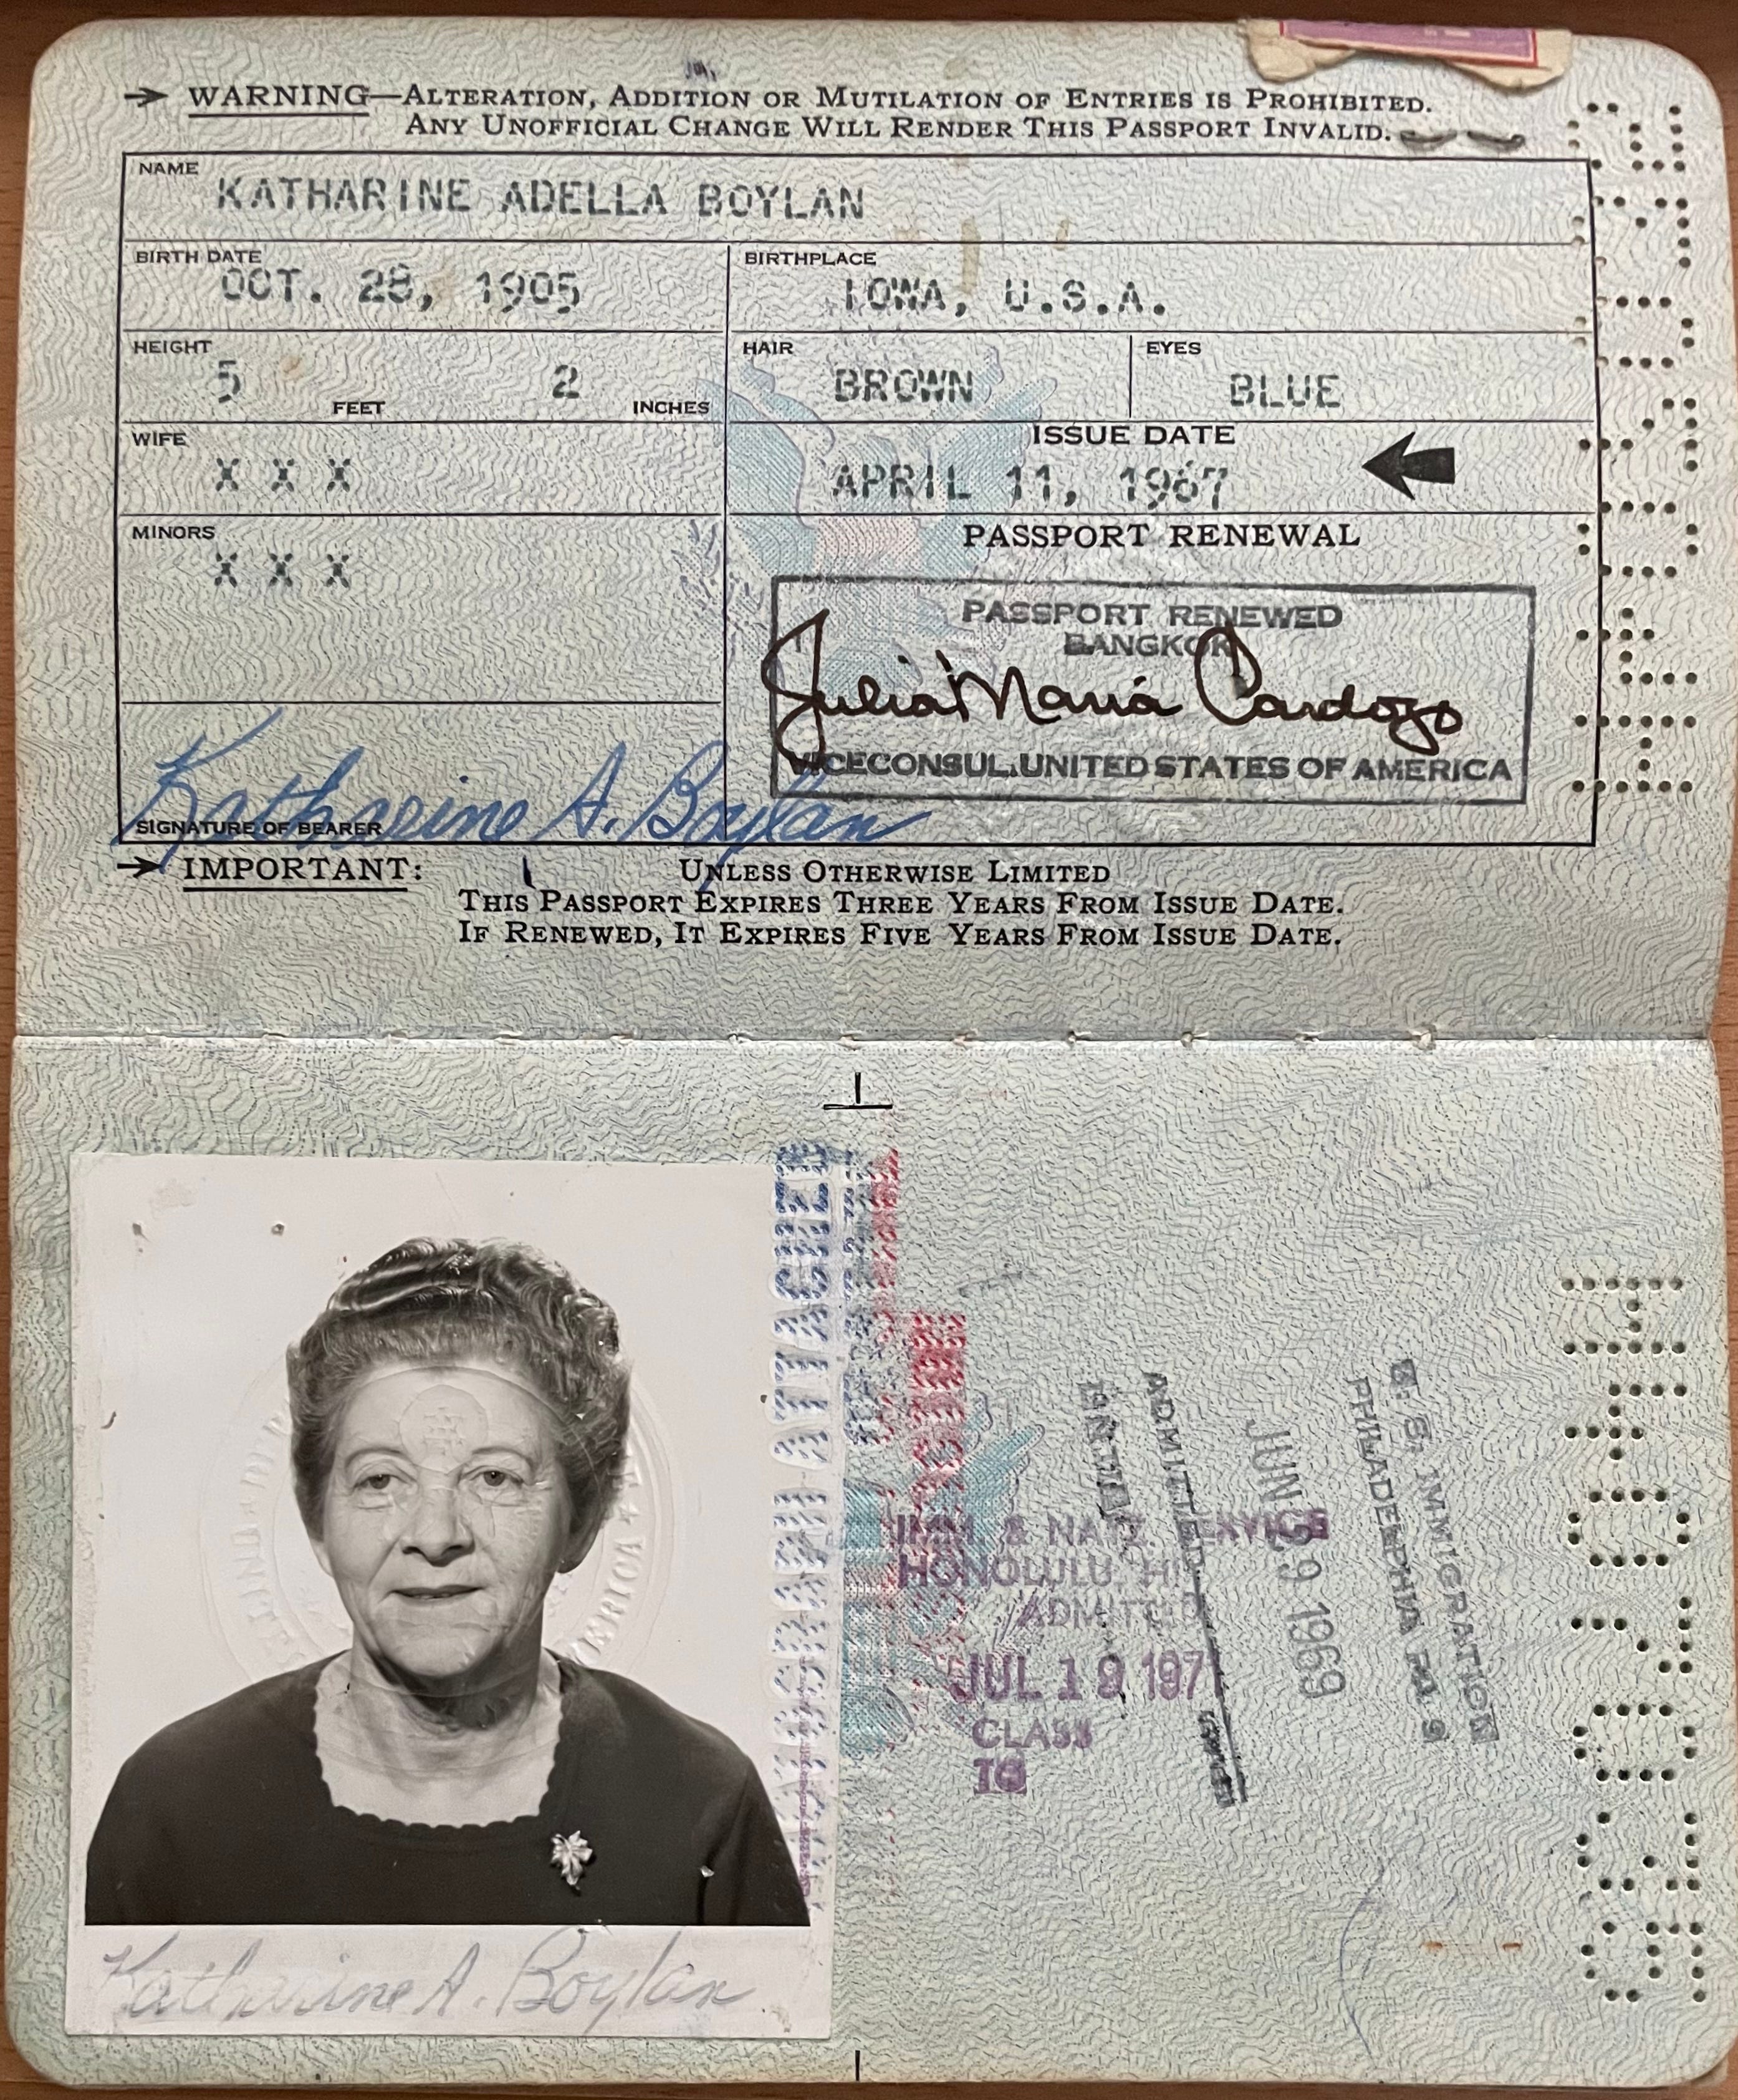 WARNING—ALTERATION, ADDITION OR MUTILATION OF ENTRIES IS PROHIBITED.
ANY UNOFFICIAL CHANGE WILL RENDER THIS PASSPORT INVALID.
NAME
KATHARINE ADELLA BOYLAN
BIRTH DATE
OCT. 28, 1905
BIRTHPLACE
IOWA, U.S.A.
HEIGHT
5 FEET 2 INCHES
HAIR
BROWN
EYES
BLUE
WIFE
X X X
ISSUE DATE
APRIL 11, 1967
MINORS
X X X
PASSPORT RENEWAL
PASSPORT RENEWED
BANGKOK
Julia Maria Cardozo
VICECONSUL.UNITED STATES OF AMERICA
Katharine A. Boylan
SIGNATURE OF BEARER
IMPORTANT: UNLESS OTHERWISE LIMITED
THIS PASSPORT EXPIRES THREE YEARS FROM ISSUE DATE.
IF RENEWED, IT EXPIRES FIVE YEARS FROM ISSUE DATE.
ATTACHED
IMM & NATZ SERVICE
HONOLULU, HI
ADMITTED
JUL 19 197
CLASS
TO
U. S. IMMIGRATION
PHILADELPHIA
JUN 29 1969
ADMITTED
Katharine A. Boylan